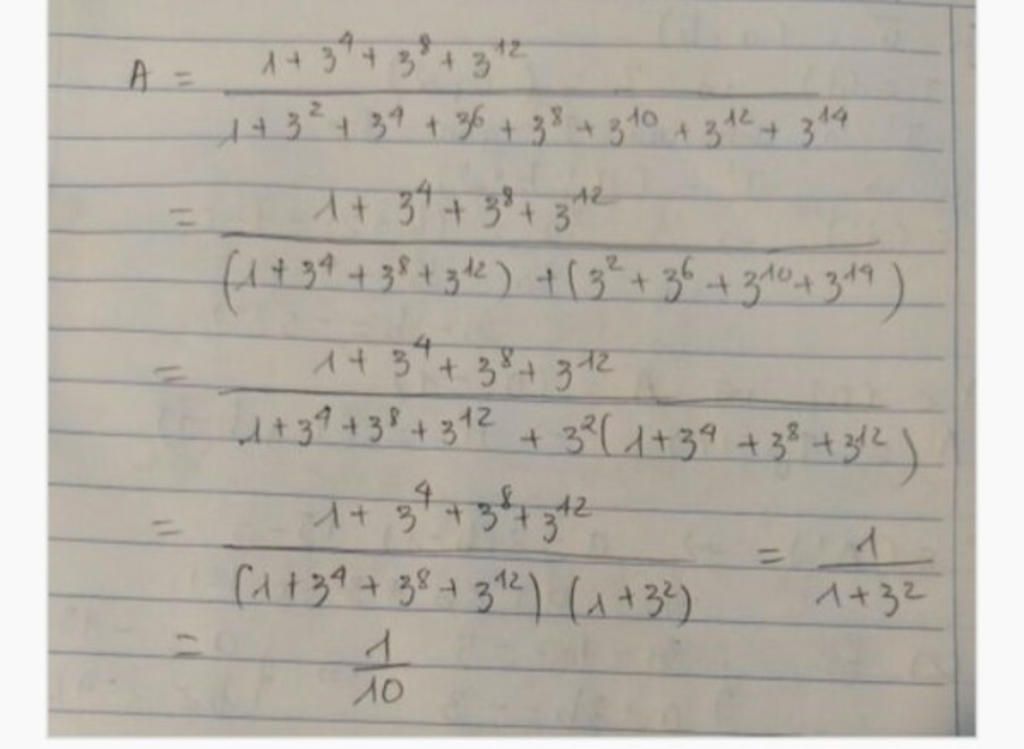 A = 1 + 3⁴ + 3⁸ + 3¹² / 1 + 3² + 3⁴ + 3⁶ + 3⁸ + 3¹⁰ + 3¹² + 3¹⁴
= 1 + 3⁴ + 3⁸ + 3¹² / (1 + 3⁴ + 3⁸ + 3¹²) + (3² + 3⁶ + 3¹⁰ + 3¹⁴)
= 1 + 3⁴ + 3⁸ + 3¹² / 1 + 3⁴ + 3⁸ + 3¹² + 3²(1 + 3⁴ + 3⁸ + 3¹²)
= 1 + 3⁴ + 3⁸ + 3¹² / (1 + 3⁴ + 3⁸ + 3¹²) (1 + 3²) = 1 / 1 + 3²
= 1 / 10